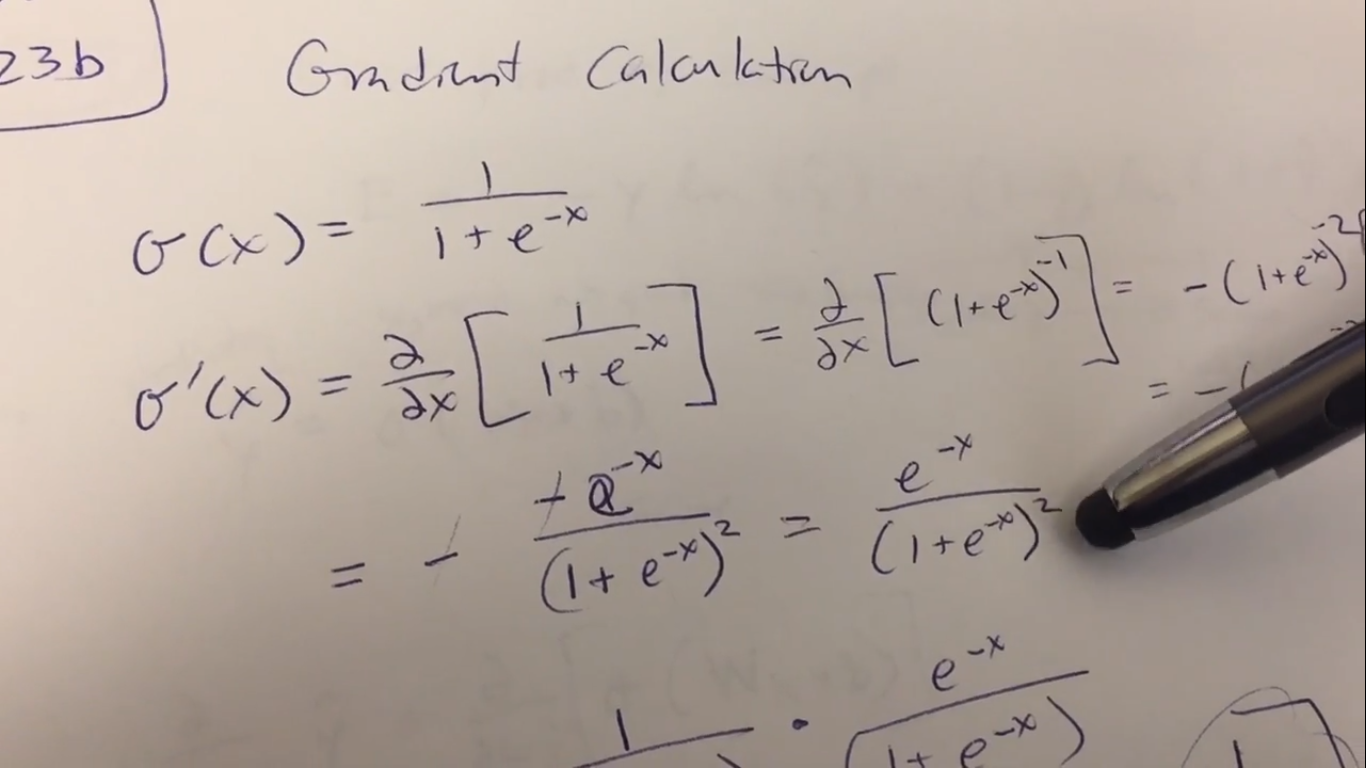 23b
Gradient Calculation
σ(x) = 1 / (1 + e^{-x})
σ'(x) = ∂/∂x [ 1 / (1 + e^{-x}) ] = ∂/∂x [ (1+e^{-x})^{-1} ] = -(1+e^{-x})^{-2}
= -(
= - -e^{-x} / (1 + e^{-x})^2 = e^{-x} / (1+e^{-x})^2
1 · e^{-x} / (1 + e^{-x})